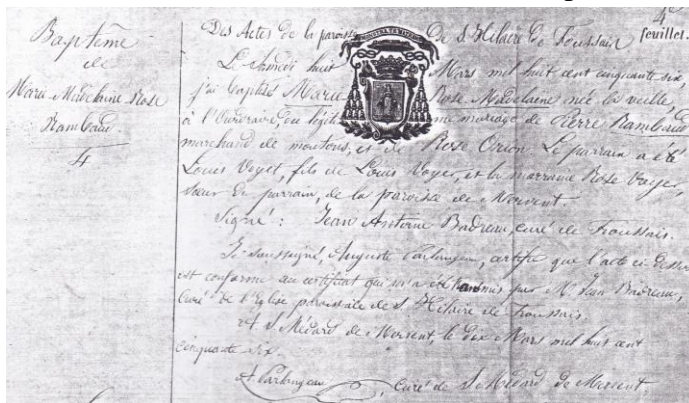 Baptême
de
Marie-Madelaine Rose
Rambaud.
4
4e
feuillet.
Des Actes de la paroisse de St Hilaire de Foussais
Le Samedi huit Mars mil huit cent cinquante six,
j'ai baptisé Marie Rose Madelaine née la veille,
à l' du légitime mariage de Pierre Rambaud
marchand de moutons, et de Rose Orion. Le parrain a été
Louis Voyer, fils de Louis Voyer, et la marraine Rose Voyer,
sœur du parrain, de la paroisse de Mervent
Signé : Jean Antoine Badreau, curé de Foussais.
Je soussigné, Auguste certifie que l'acte ci dessus
est conforme au certificat qui m'a été transmis par M. Jean Badreau,
Curé de l'Eglise paroissiale de St Hilaire de Foussais.
A St Médard de Mervent, le dix Mars mil huit cent
cinquante six.
Curé de St Médard de Mervent